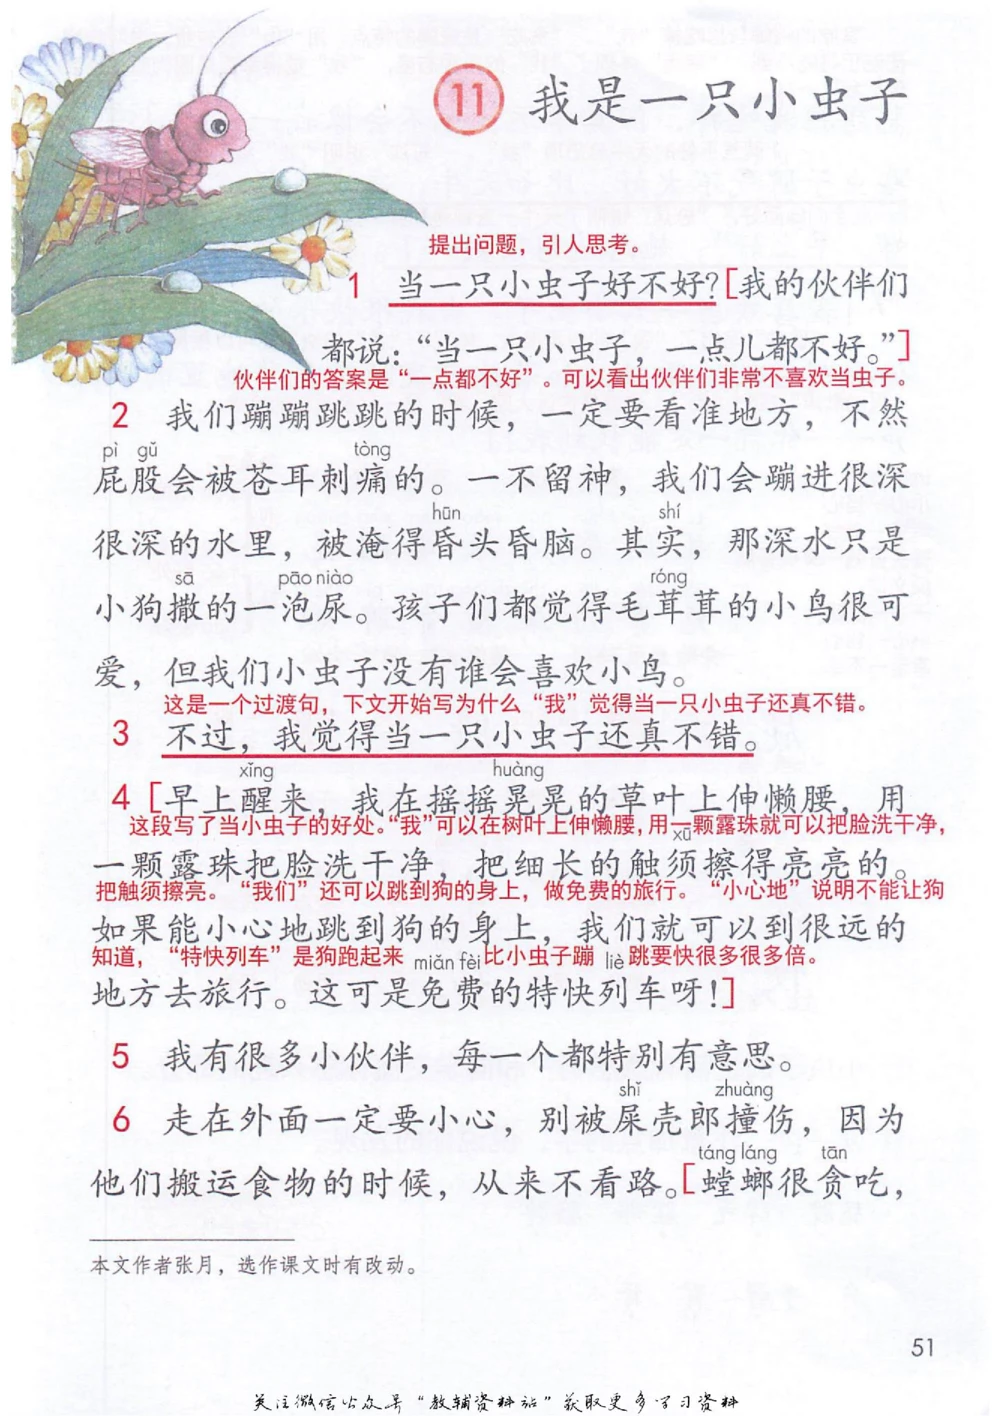 11 我是一只小虫子
提出问题，引人思考。
1 当一只小虫子好不好？[我的伙伴们
都说：“当一只小虫子，一点儿都不好。”]
伙伴们的答案是“一点都不好”。可以看出伙伴们非常不喜欢当虫子。
2 我们蹦蹦跳跳的时候，一定要看准地方，不然
pì gǔ tòng
屁股会被苍耳刺痛的。一不留神，我们会蹦进很深
hūn shí
很深的水里，被淹得昏头昏脑。其实，那深水只是
sā pāo niào róng
小狗撒的一泡尿。孩子们都觉得毛茸茸的小鸟很可
爱，但我们小虫子没有谁会喜欢小鸟。
这是一个过渡句，下文开始写为什么“我”觉得当一只小虫子还真不错。
3 不过，我觉得当一只小虫子还真不错。
xǐng huàng
4 [早上醒来，我在摇摇晃晃的草叶上伸懒腰，用
这段写了当小虫子的好处。“我”可以在树叶上伸懒腰，用一颗露珠就可以把脸洗干净，
xū
一颗露珠把脸洗干净，把细长的触须擦得亮亮的。
把触须擦亮。“我们”还可以跳到狗的身上，做免费的旅行。“小心地”说明不能让狗
如果能小心地跳到狗的身上，我们就可以到很远的
知道，“特快列车”是狗跑起来 miǎn fèi 比小虫子蹦 liè 跳要快很多很多倍。
地方去旅行。这可是免费的特快列车呀！]
5 我有很多小伙伴，每一个都特别有意思。
shǐ zhuàng
6 走在外面一定要小心，别被屎壳郎撞伤，因为
táng láng tān
他们搬运食物的时候，从来不看路。[螳螂很贪吃，
本文作者张月，选作课文时有改动。
51
关注微信公众号“教辅资料站”获取更多学习资料